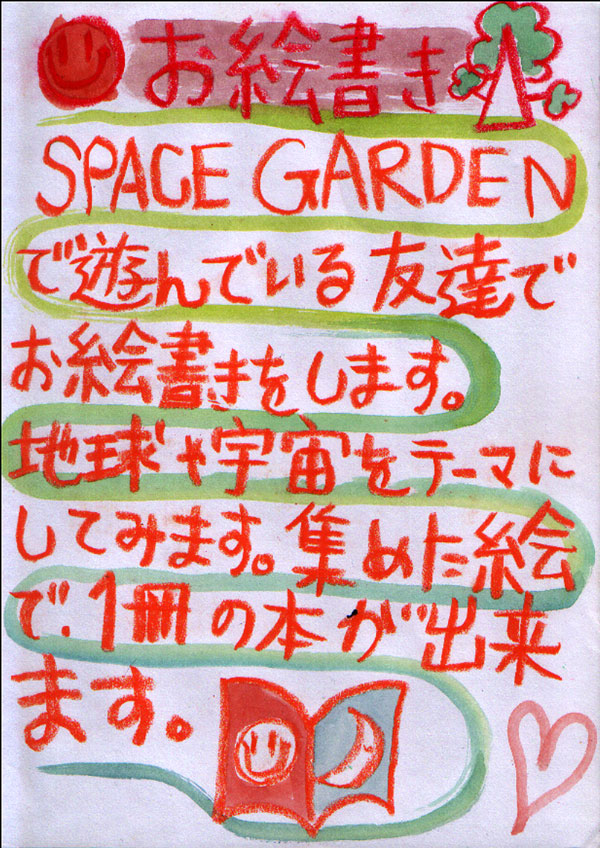 お絵書き
SPACE GARDEN
で遊んでいる友達で
お絵書きをします。
地球や宇宙をテーマに
してみます。集めた絵
で、1冊の本が出来
ます。